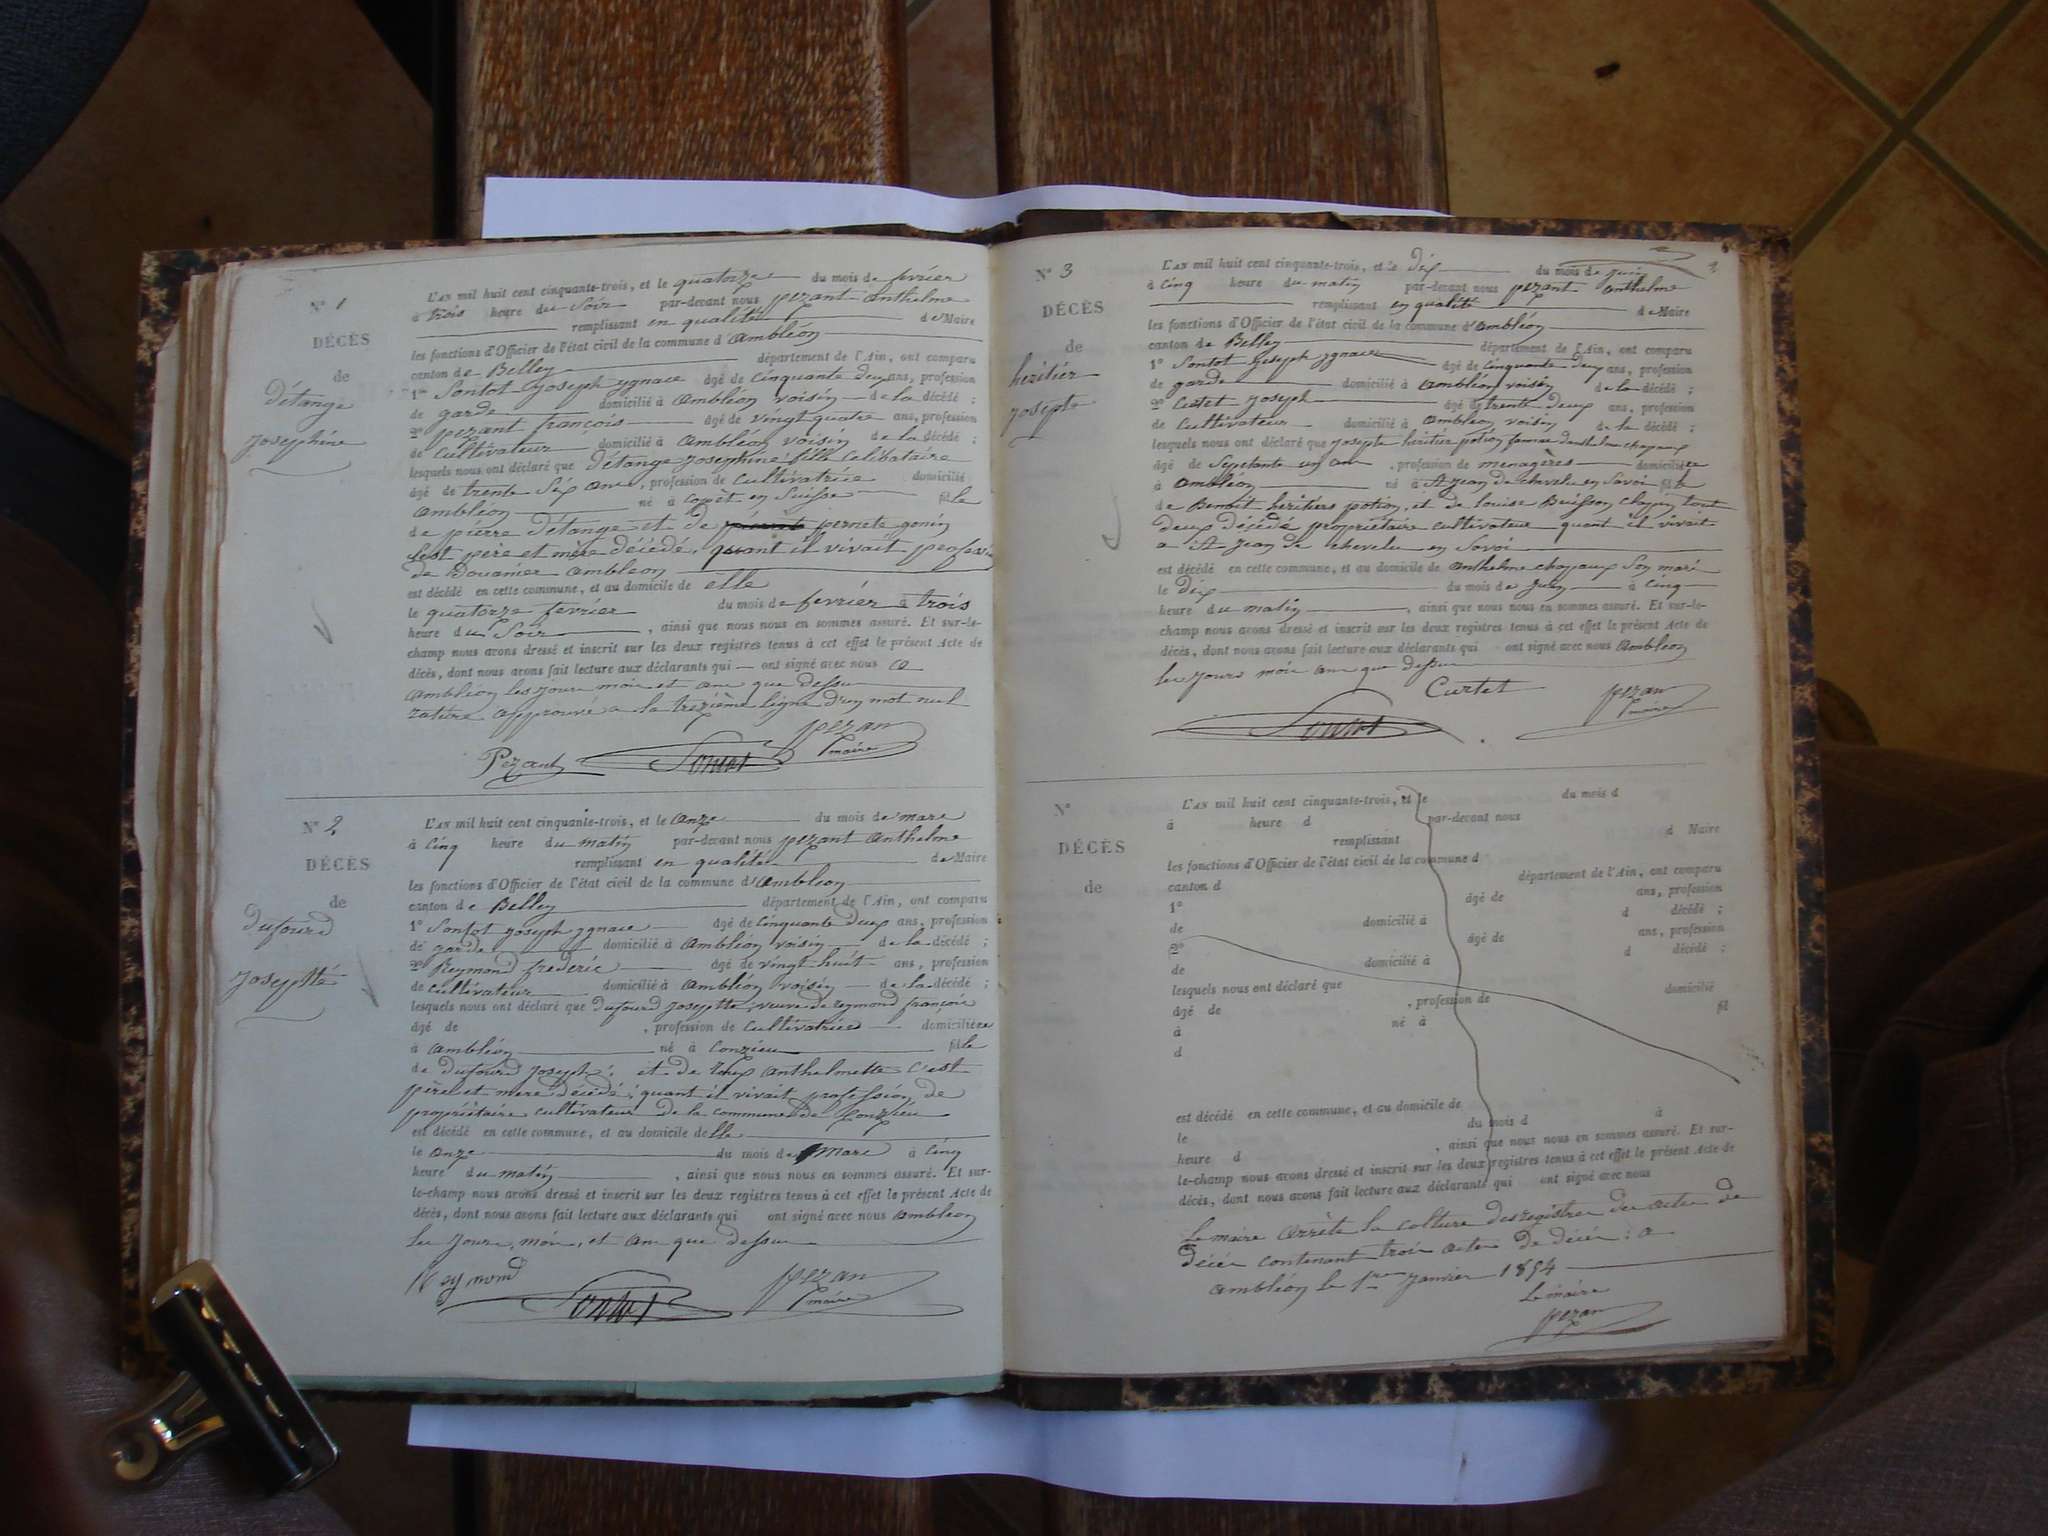 N° 1
DÉCÈS
de
Détange
Josephine
L'AN mil huit cent cinquante-trois, et le quatorze du mois de fevrier
à trois heure du Soir par-devant nous pezant anthelme
remplissant en qualité de Maire
les fonctions d'Officier de l'état civil de la commune d'ambléon
canton de Belley département de l'Ain, ont comparu
1° Sontot Joseph ygnace âgé de Cinquante deux ans, profession
de garde domicilié à Ambléon voisin de la décédé ;
2° pezant françois âgé de vingt quatre ans, profession
de Cultivateur domicilié à Ambléon voisin de la décédé ;
lesquels nous ont déclaré que Détange Josephine fille Celibataire
âgé de trente Six ans, profession de Cultivatrice domicilié
Ambléon né à Copèt en Suisse fille
de pierre Détange et de pernete gonin
Sest pere et mère décédé, quant il vivait professi
de Douanier ambleon
est décédé en cette commune, et au domicile de elle
le quatorze fevrier du mois de fevrier à trois
heure du Soir, ainsi que nous nous en sommes assuré. Et sur-le-
champ nous avons dressé et inscrit sur les deux registres tenus à cet effet le présent Acte de
décès, dont nous avons fait lecture aux déclarants qui ont signé avec nous a
ambléon les jour mois et an que dessu
rature approuvé a la trézième ligne d'un mot nul
Pezant Sontot pezan
maire
N° 2
DÉCÈS
de
dufourd
Josephtte
L'AN mil huit cent cinquante-trois, et le onze du mois de mars
à Cinq heure du matin par-devant nous pezant anthelme
remplissant en qualité de Maire
les fonctions d'Officier de l'état civil de la commune d'ambléon
canton de Belley département de l'Ain, ont comparu
1° Sontot Joseph ygnace âgé de Cinquante deux ans, profession
de garde domicilié à Ambléon voisin de la décédé ;
2° Reymond frederic âgé de vingt huit ans, profession
de Cultivateur domicilié à Ambléon voisin de la décédé ;
lesquels nous ont déclaré que dufourd Josephtte veuve de reymond françois
âgé de , profession de Cultivatrice domiciliée
à Ambléon né à Conzieu fille
de dufourd Joseph et de anthelmette C'est
père et mere décédé ; quant il vivait profession de
propriétaire cultivateur de la commune de Conzieu
est décédé en cette commune, et au domicile delle
le onze du mois de Mars à Cinq
heure du matin, ainsi que nous nous en sommes assuré. Et sur-
le-champ nous avons dressé et inscrit sur les deux registres tenus à cet effet le présent Acte de
décès, dont nous avons fait lecture aux déclarants qui ont signé avec nous ambléon
les jour, mois, et an que dessu
Reymond Sontot pezan
maire
N° 3
DÉCÈS
de
heritier
Josepte
L'AN mil huit cent cinquante-trois, et le dix du mois de juin
à Cinq heure du matin par-devant nous pezant anthelme
remplissant en qualité de Maire
les fonctions d'Officier de l'état civil de la commune d'Ambléon
canton de Belley département de l'Ain, ont comparu
1° Sontot Joseph ygnace âgé de Cinquante deux ans, profession
de garde domicilié à Ambléon voisin de la décédé ;
2° Curtet Joseph âgé de trente deux ans, profession
de Cultivateur domicilié à Ambléon voisin de la décédé ;
lesquels nous ont déclaré que Josepte héritier potion femme danthelme chapaux
âgé de Septante un an, profession de menagères domiciliée
à Ambléon né à St Jean de chevelu en Savoi fille
de Benoit heritiers potion, et de louise Buisson tout
deux décédé propriétaire cultivateur quant il vivait
a St Jean de chevelu en Savoi
est décédé en cette commune, et au domicile de anthelme chapaux Son mari
le Dix du mois de Juin à Cinq
heure du matin, ainsi que nous nous en sommes assuré. Et sur-le-
champ nous avons dressé et inscrit sur les deux registres tenus à cet effet le présent Acte de
décès, dont nous avons fait lecture aux déclarants qui ont signé avec nous Ambléon
les jours mois an que dessu
Sontot Curtet pezan
maire
N°
DÉCÈS
de
L'AN mil huit cent cinquante-trois, et le du mois d
à heure d par-devant nous
remplissant d Maire
les fonctions d'Officier de l'état civil de la commune d
canton d département de l'Ain, ont comparu
1° âgé de ans, profession
de domicilié à d décédé ;
2° âgé de ans, profession
de domicilié à d décédé ;
lesquels nous ont déclaré que domicilié
âgé de , profession de
à né à fil
d
est décédé en cette commune, et au domicile de
le du mois d à
heure d , ainsi que nous nous en sommes assuré. Et sur-
le-champ nous avons dressé et inscrit sur les deux registres tenus à cet effet le présent Acte de
décès, dont nous avons fait lecture aux déclarants qui ont signé avec nous
Le maire arrète la colture des registres des actes de
décés contenant trois actes de décés : a
ambléon le 1er Janvier 1854
Le maire
pezan